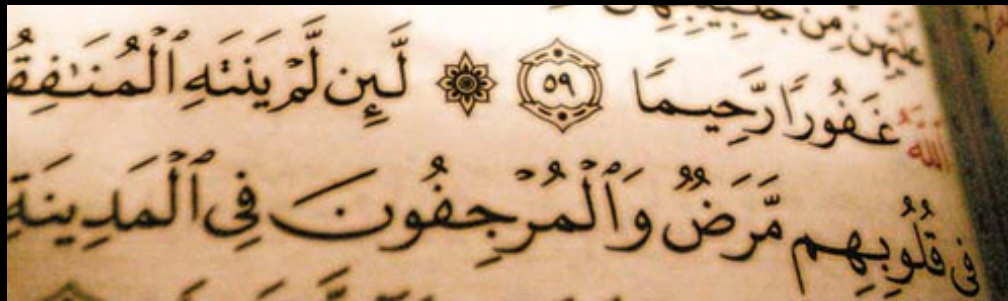 عَلَيْهِنَّ مِن جَلَٰبِيبِهِنَّ
ٱللَّهُ غَفُورًا رَّحِيمًا ٥٩ ۞ لَّئِن لَّمْ يَنتَهِ ٱلْمُنَٰفِقُ
فِى قُلُوبِهِم مَّرَضٌ وَٱلْمُرْجِفُونَ فِى ٱلْمَدِينَةِ